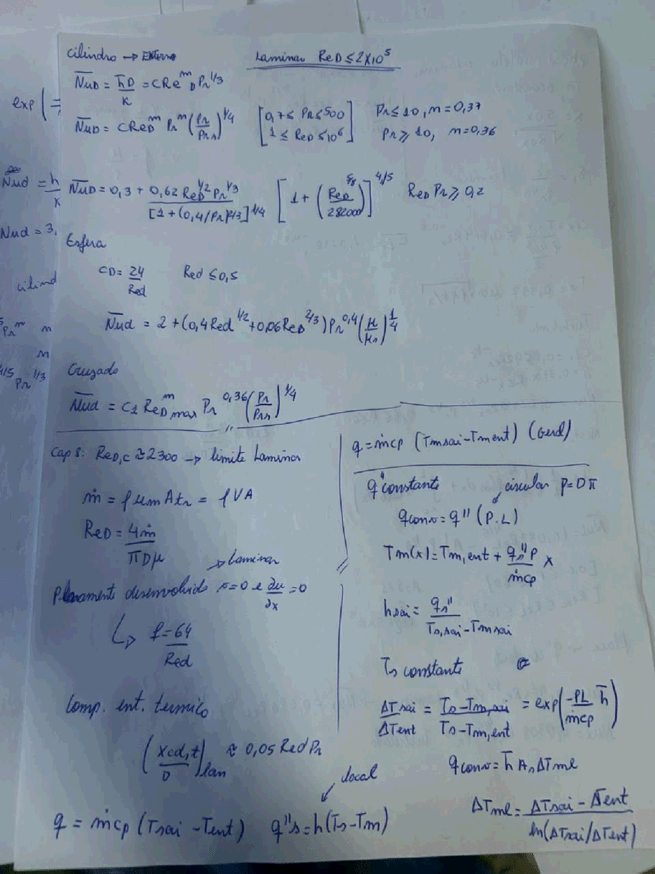 Cilindro → Externo
Laminar ReD ≤ 2×10^5
N̅uD = h̅D/K = CRe_D^m Pr^1/3
N̅uD = CReD^m Pr^m (Pr/Prs)^1/4 [0,7 ≤ Pr ≤ 500 1 ≤ ReD ≤ 10^6] Pr ≤ 10, m = 0,37
Pr ≥ 10, m = 0,36
exp (=
Nud = h/K
N̅uD = 0,3 + 0,62 ReD^1/2 Pr^1/3 / [1 + (0,4/Pr)^2/3]^1/4 [1 + (ReD/282000)^5/8]^4/5 ReD Pr ≥ 0,2
Nud = 3,
Esfera
cilind
CD = 24/Red Red ≤ 0,5
Pr^m m
N̅ud = 2 + (0,4 Red^1/2 + 0,06 ReD^2/3) Pr^0,4 (μ/μs)^1/4
m
4/5 Pr^1/3
Cruzado
N̅ud = C1 ReD^m max Pr^0,36 (Pr/Prs)^1/4
Cap 8: ReD,c ≈ 2300 → limite Laminar
ṁ = ρ um Atr = ρVA
ReD = 4ṁ/πDμ
→ Laminar
Plenamente desenvolvido v=0 e ∂u/∂x = 0
↳ f = 64/Red
Comp. ent. termico
(xcd,t/D)lam ≈ 0,05 Red Pr
q = ṁcp (Tsai - Tent) q"s = h(Ts - Tm)
local
q = ṁcp (Tmsai - Tment) (Geral)
q" constante
circular P = Dπ
qconv = q" (P.L)
Tm(x) = Tm,ent + qs"P/ṁcp x
hsai = qs"/Ts,sai - Tmsai
Ts constante
ΔTsai/ΔTent = Ts - Tm,sai/Ts - Tm,ent = exp(-PL/ṁcp h̅)
qconv = h̅ As ΔTml
ΔTml = ΔTsai - ΔTent/ln(ΔTsai/ΔTent)